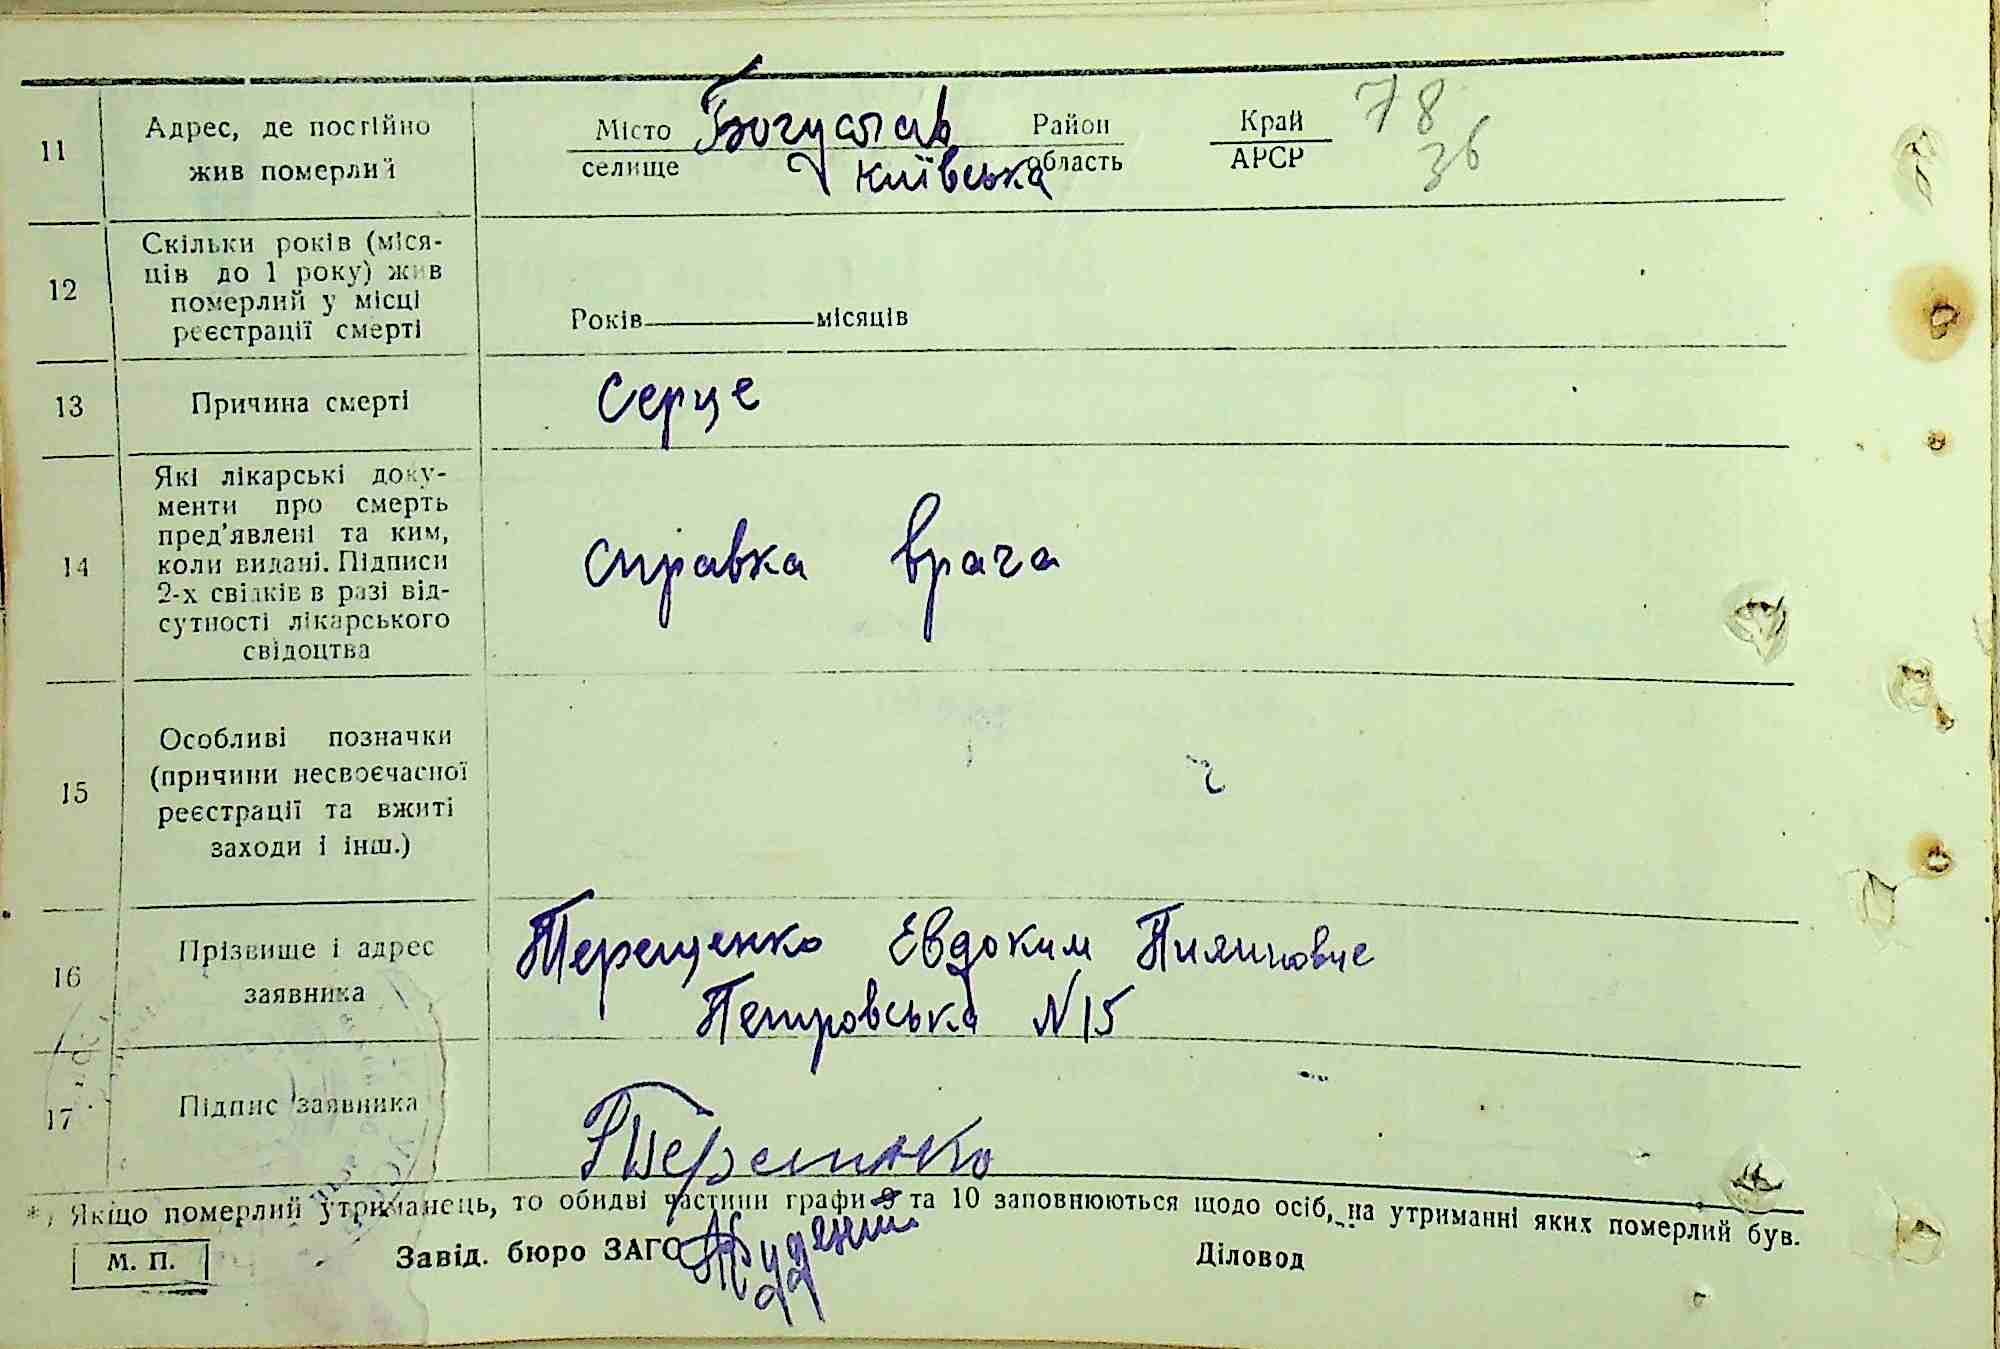 11 Адрес, де постійно жив померлий
Місто Богуслав Район Край 78
селище Київська область АРСР 36
12 Скільки років (міся-
ців до 1 року) жив
померлий у місці
реєстрації смерті
Років місяців
13 Причина смерті Серце
14 Які лікарські доку-
менти про смерть
пред'явлені та ким,
коли видані. Підписи
2-х свідків в разі від-
сутності лікарського
свідоцтва
справка врача
15 Особливі позначки
(причини несвоєчасної
реєстрації та вжиті
заходи і інш.)
16 Прізвище і адрес
заявника
Терещенко Евдоким
Петровська N15
17 Підпис заявника Терещенко
*) Якщо померлий утриманець, то обидві частини графи 9 та 10 заповнюються щодо осіб, на утриманні яких померлий був.
М. П. Завід. бюро ЗАГС Діловод